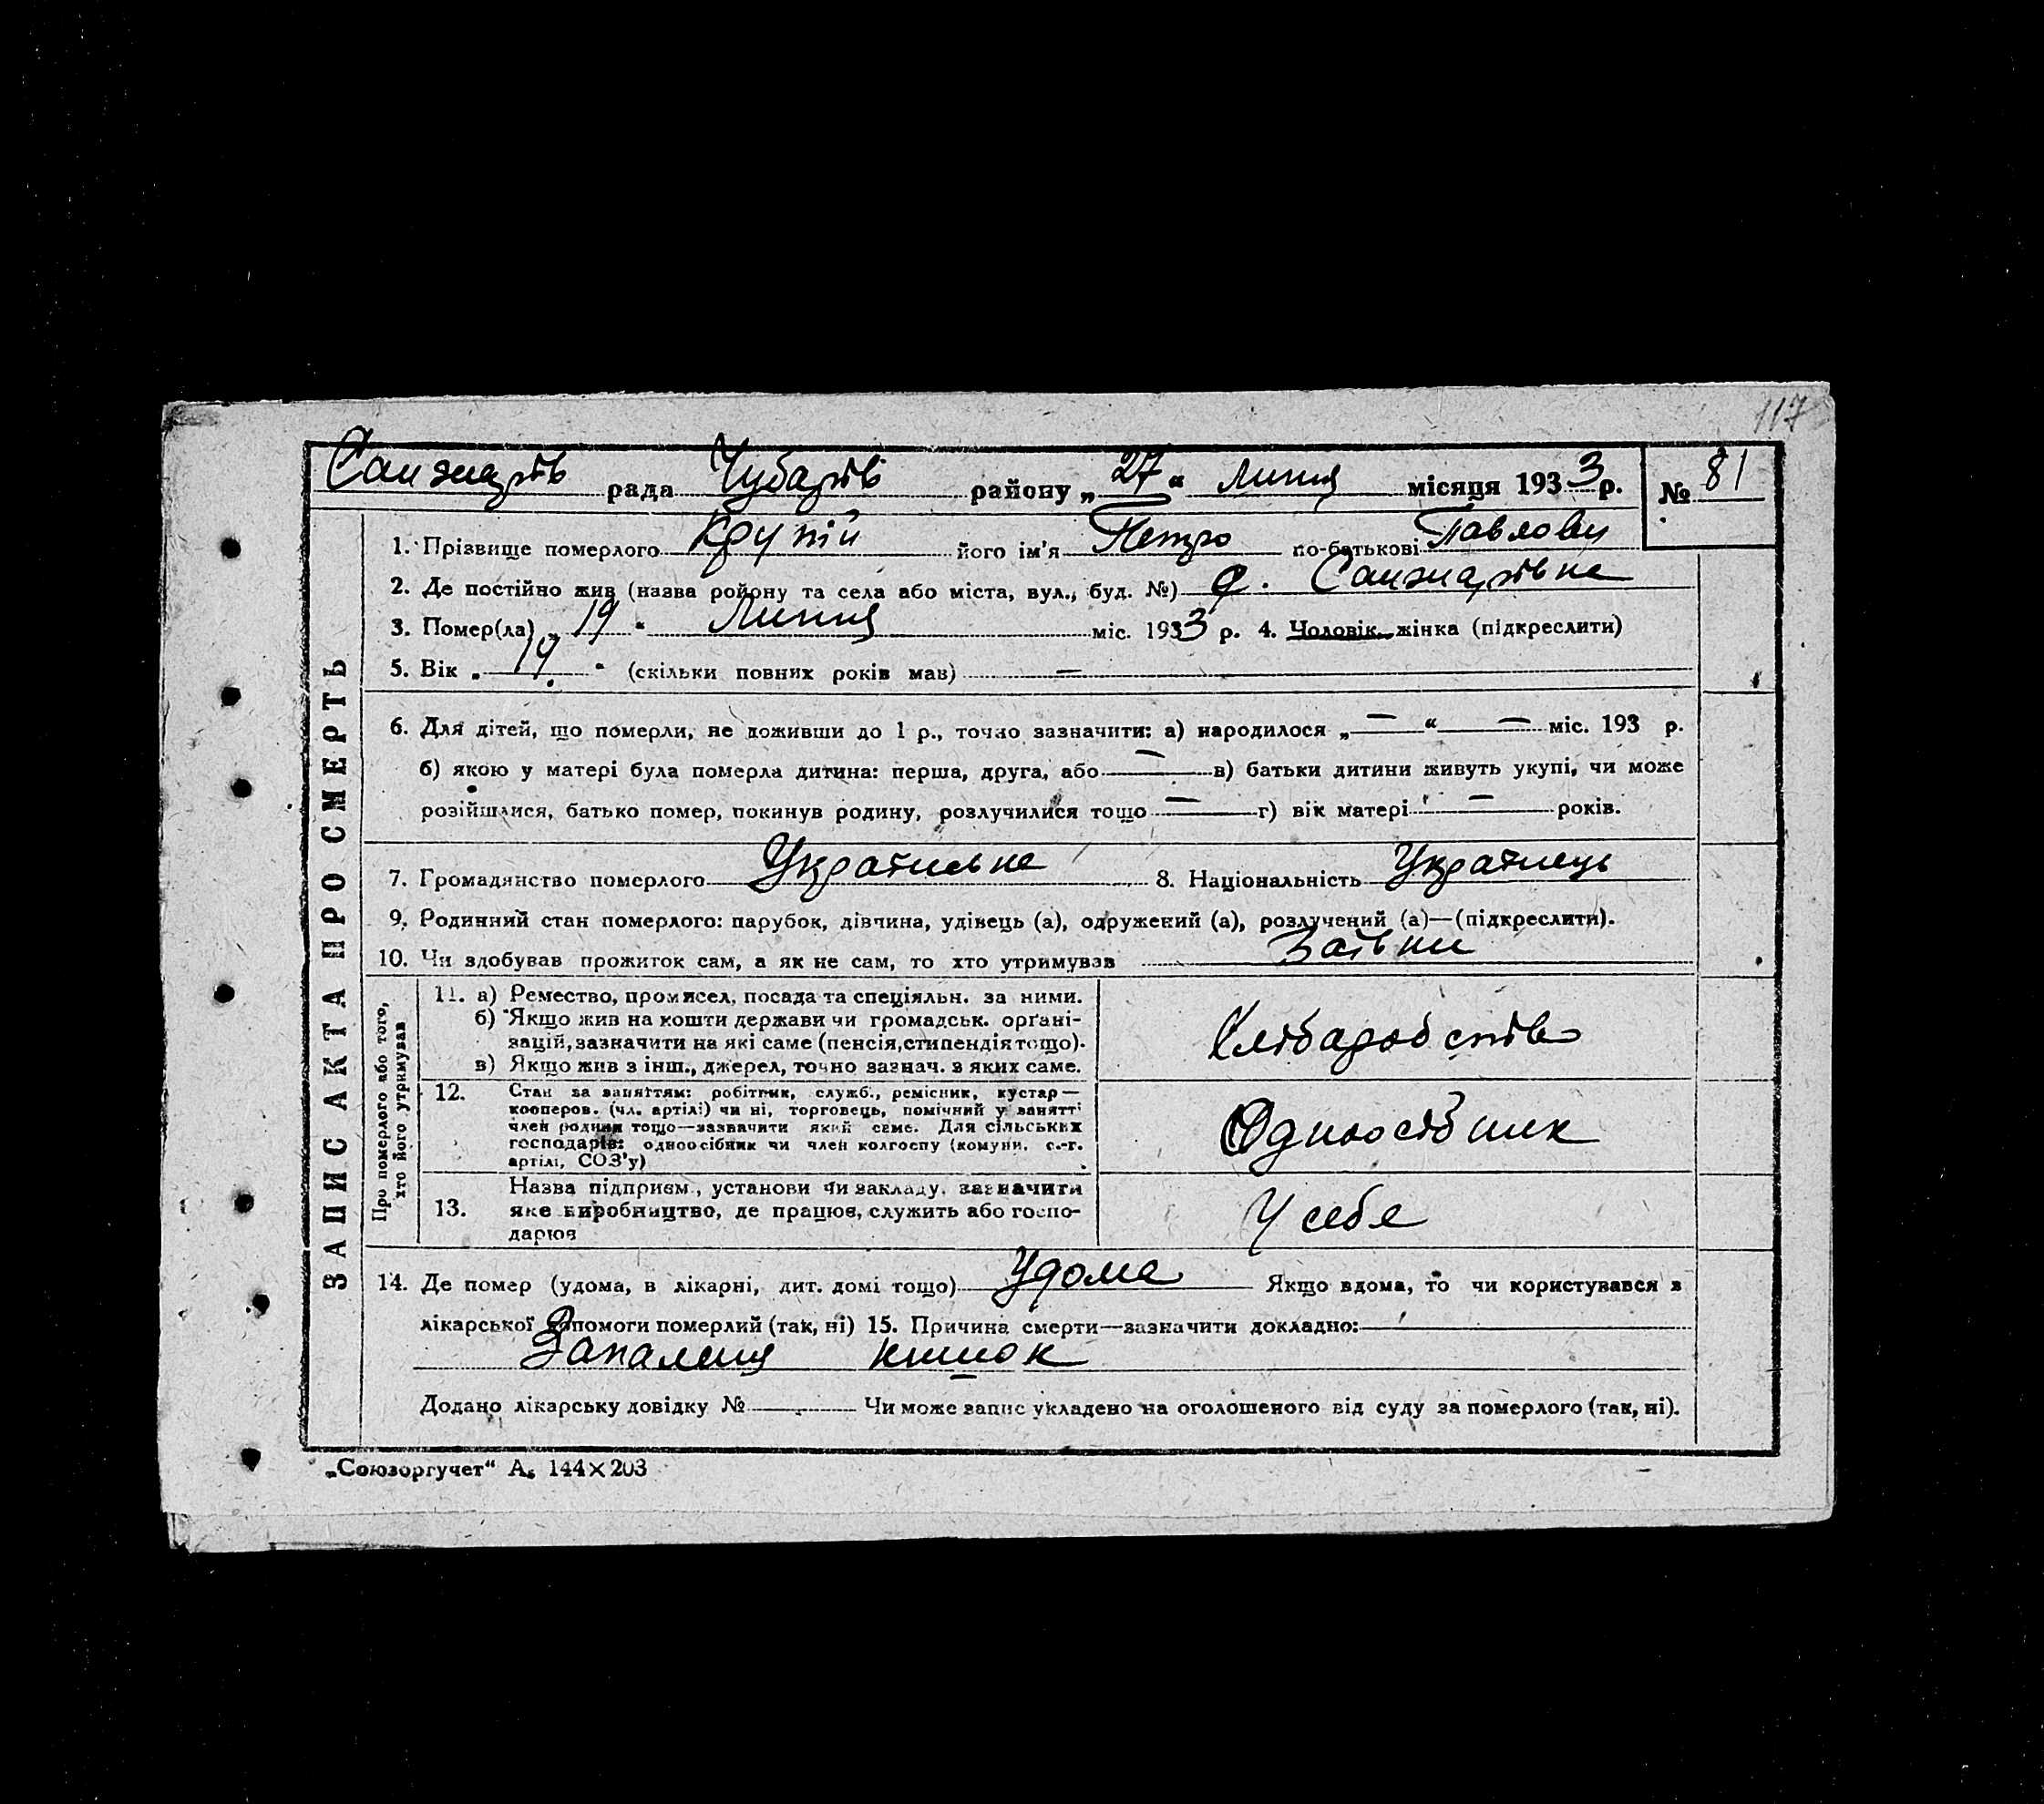 117
Санжарів рада Чубарів району „27“ Липня місяця 1933 р. № 81
ЗАПИС АКТА ПРО СМЕРТЬ
1. Прізвище померлого Крупій його ім'я Петро по-батькові Павлович
2. Де постійно жив (назва ройону та села або міста, вул., буд. №) с. Санжарівка
3. Помер(ла) „19“ Липня міс. 1933 р. 4. Чоловік жінка (підкреслити)
5. Вік „19“ (скільки повних років мав) —
6. Для дітей, що померли, не доживши до 1 р., точно зазначити: а) народилося „—“ — міс. 193 р.
б) якою у матері була померла дитина: перша, друга, або — в) батьки дитини живуть укупі, чи може
розійшлися, батько помер, покинув родину, розлучилися тощо — г) вік матері — років.
7. Громадянство померлого Українське 8. Національність Українець
9. Родинний стан померлого: парубок, дівчина, удівець (а), одружений (а), розлучений (а)—(підкреслити).
10. Чи здобував прожиток сам, а як не сам, то хто утримував
Про померлого або того, хто його утримував
11. а) Ремество, промисел, посада та спеціяльн. за ними.
б) Якщо жив на кошти держави чи громадськ. органі-
зацій, зазначити на які саме (пенсія, стипендія тощо).
в) Якщо жив з інш., джерел, точно зазнач. з яких саме.
Хлібаробство
12. Стан за заняттям: робітник, служб., ремісник, кустар—
кооперов. (чл. артілі) чи ні, торговець, помічний у занятті
член родини тощо—зазвачити який саме. Для сільських
господарів: одноосібник чи член колгоспу (комуни, с.-г.
артілі, СОЗ'у)
Одноосібник
13. Назва підприєм., установи чи закладу, зазначити
яке виробництво, де працює, служить або госпо-
дарює
У себе
14. Де помер (удома, в лікарні, дит. домі тощо) Удома Якщо вдома, то чи користувався з
лікарської допомоги померлий (так, ні) 15. Причина смерти—зазначити докладно:
Запалення кишок
Додано лікарську довідку № — Чи може запис укладено на оголошеного від суду за померлого (так, ні).
„Союзоргучет“ А₆ 144×203